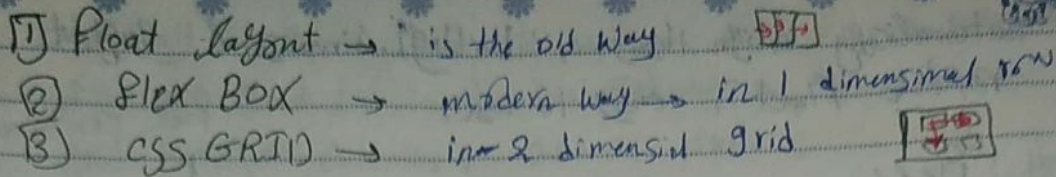 1 Float layout → is the old way
2 flex BOX → modern way → in 1 dimensional row
3 CSS GRID → in 2 dimensional grid